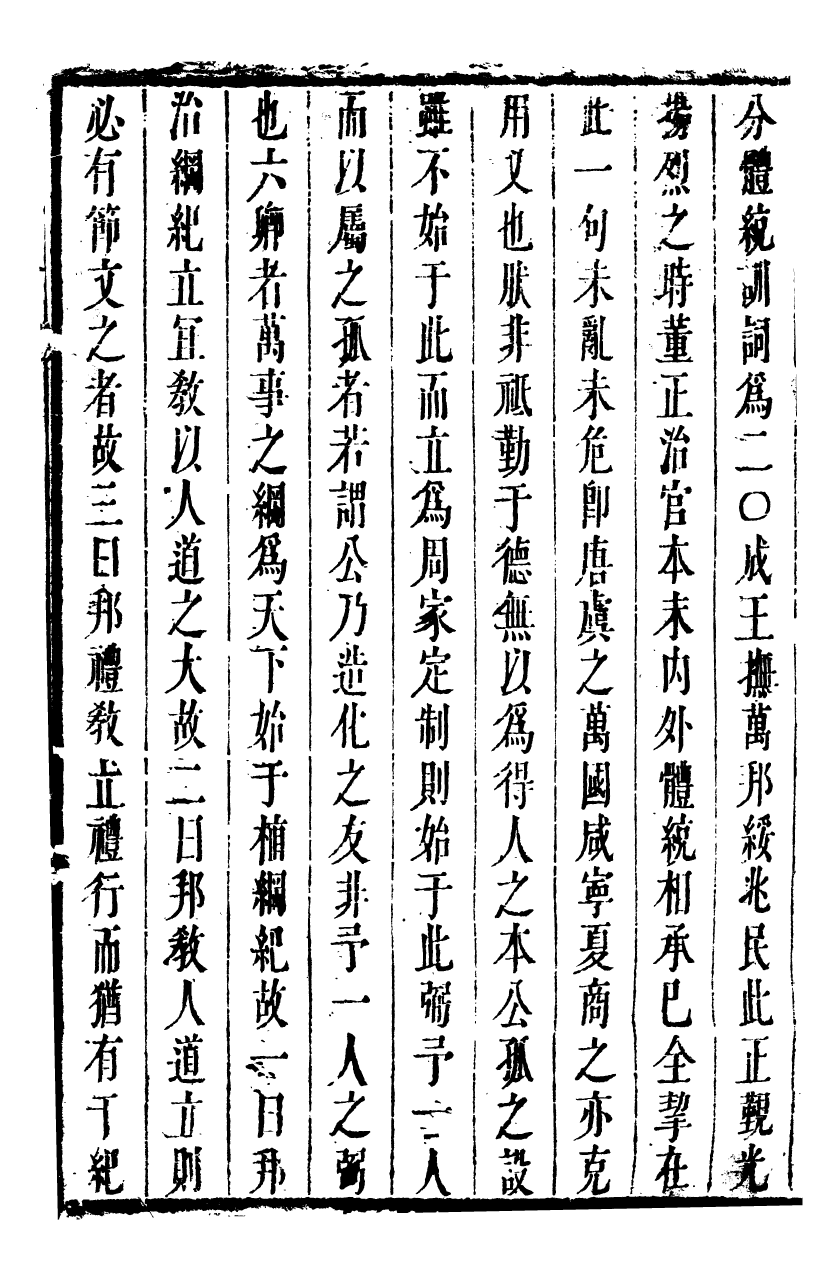 分體統訓詞爲二〇成王撫萬邦綏兆民此正覲光
揚烈之時董正治官本末內外體統相承已全挈在
此一句未亂未危卽唐虞之萬國咸寧夏商之亦克
用乂也肰非祗勤于德無以爲得人之本公孤之設
雖不始于此而立爲周家定制則始于此弼予一人
而以屬之孤者若謂公乃造化之友非予一人之弼
也六卿者萬事之綱爲天下始于植綱紀故一曰邦
治綱紀立宜敎以人道之大故二曰邦敎人道立則
必有節文之者故三曰邦禮敎立禮行而猶有干紀